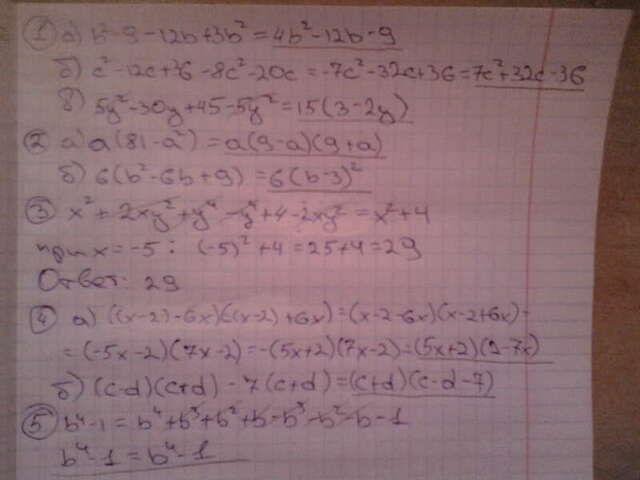 ① а) b²-9-12b+3b²=4b²-12b-9
б) c²-12c+36-8c²-20c=-7c²-32c+36=7c²+32c-36
в) 5y²-30y+45-5y²=15(3-2y)
② а) a(81-a²)=a(9-a)(9+a)
б) 6(b²-6b+9)=6(b-3)²
③ x²+2xy²+y⁴-y⁴+4-2xy²=x²+4
при x=-5: (-5)²+4=25+4=29
Ответ: 29
④ а) ((x-2)-6x)((x-2)+6x)=(x-2-6x)(x-2+6x)=
=(-5x-2)(7x-2)=-(5x+2)(7x-2)=(5x+2)(2-7x)
б) (c-d)(c+d)-7(c+d)=(c+d)(c-d-7)
⑤ b⁴-1=b⁴+b³+b²+b-b³-b²-b-1
b⁴-1=b⁴-1